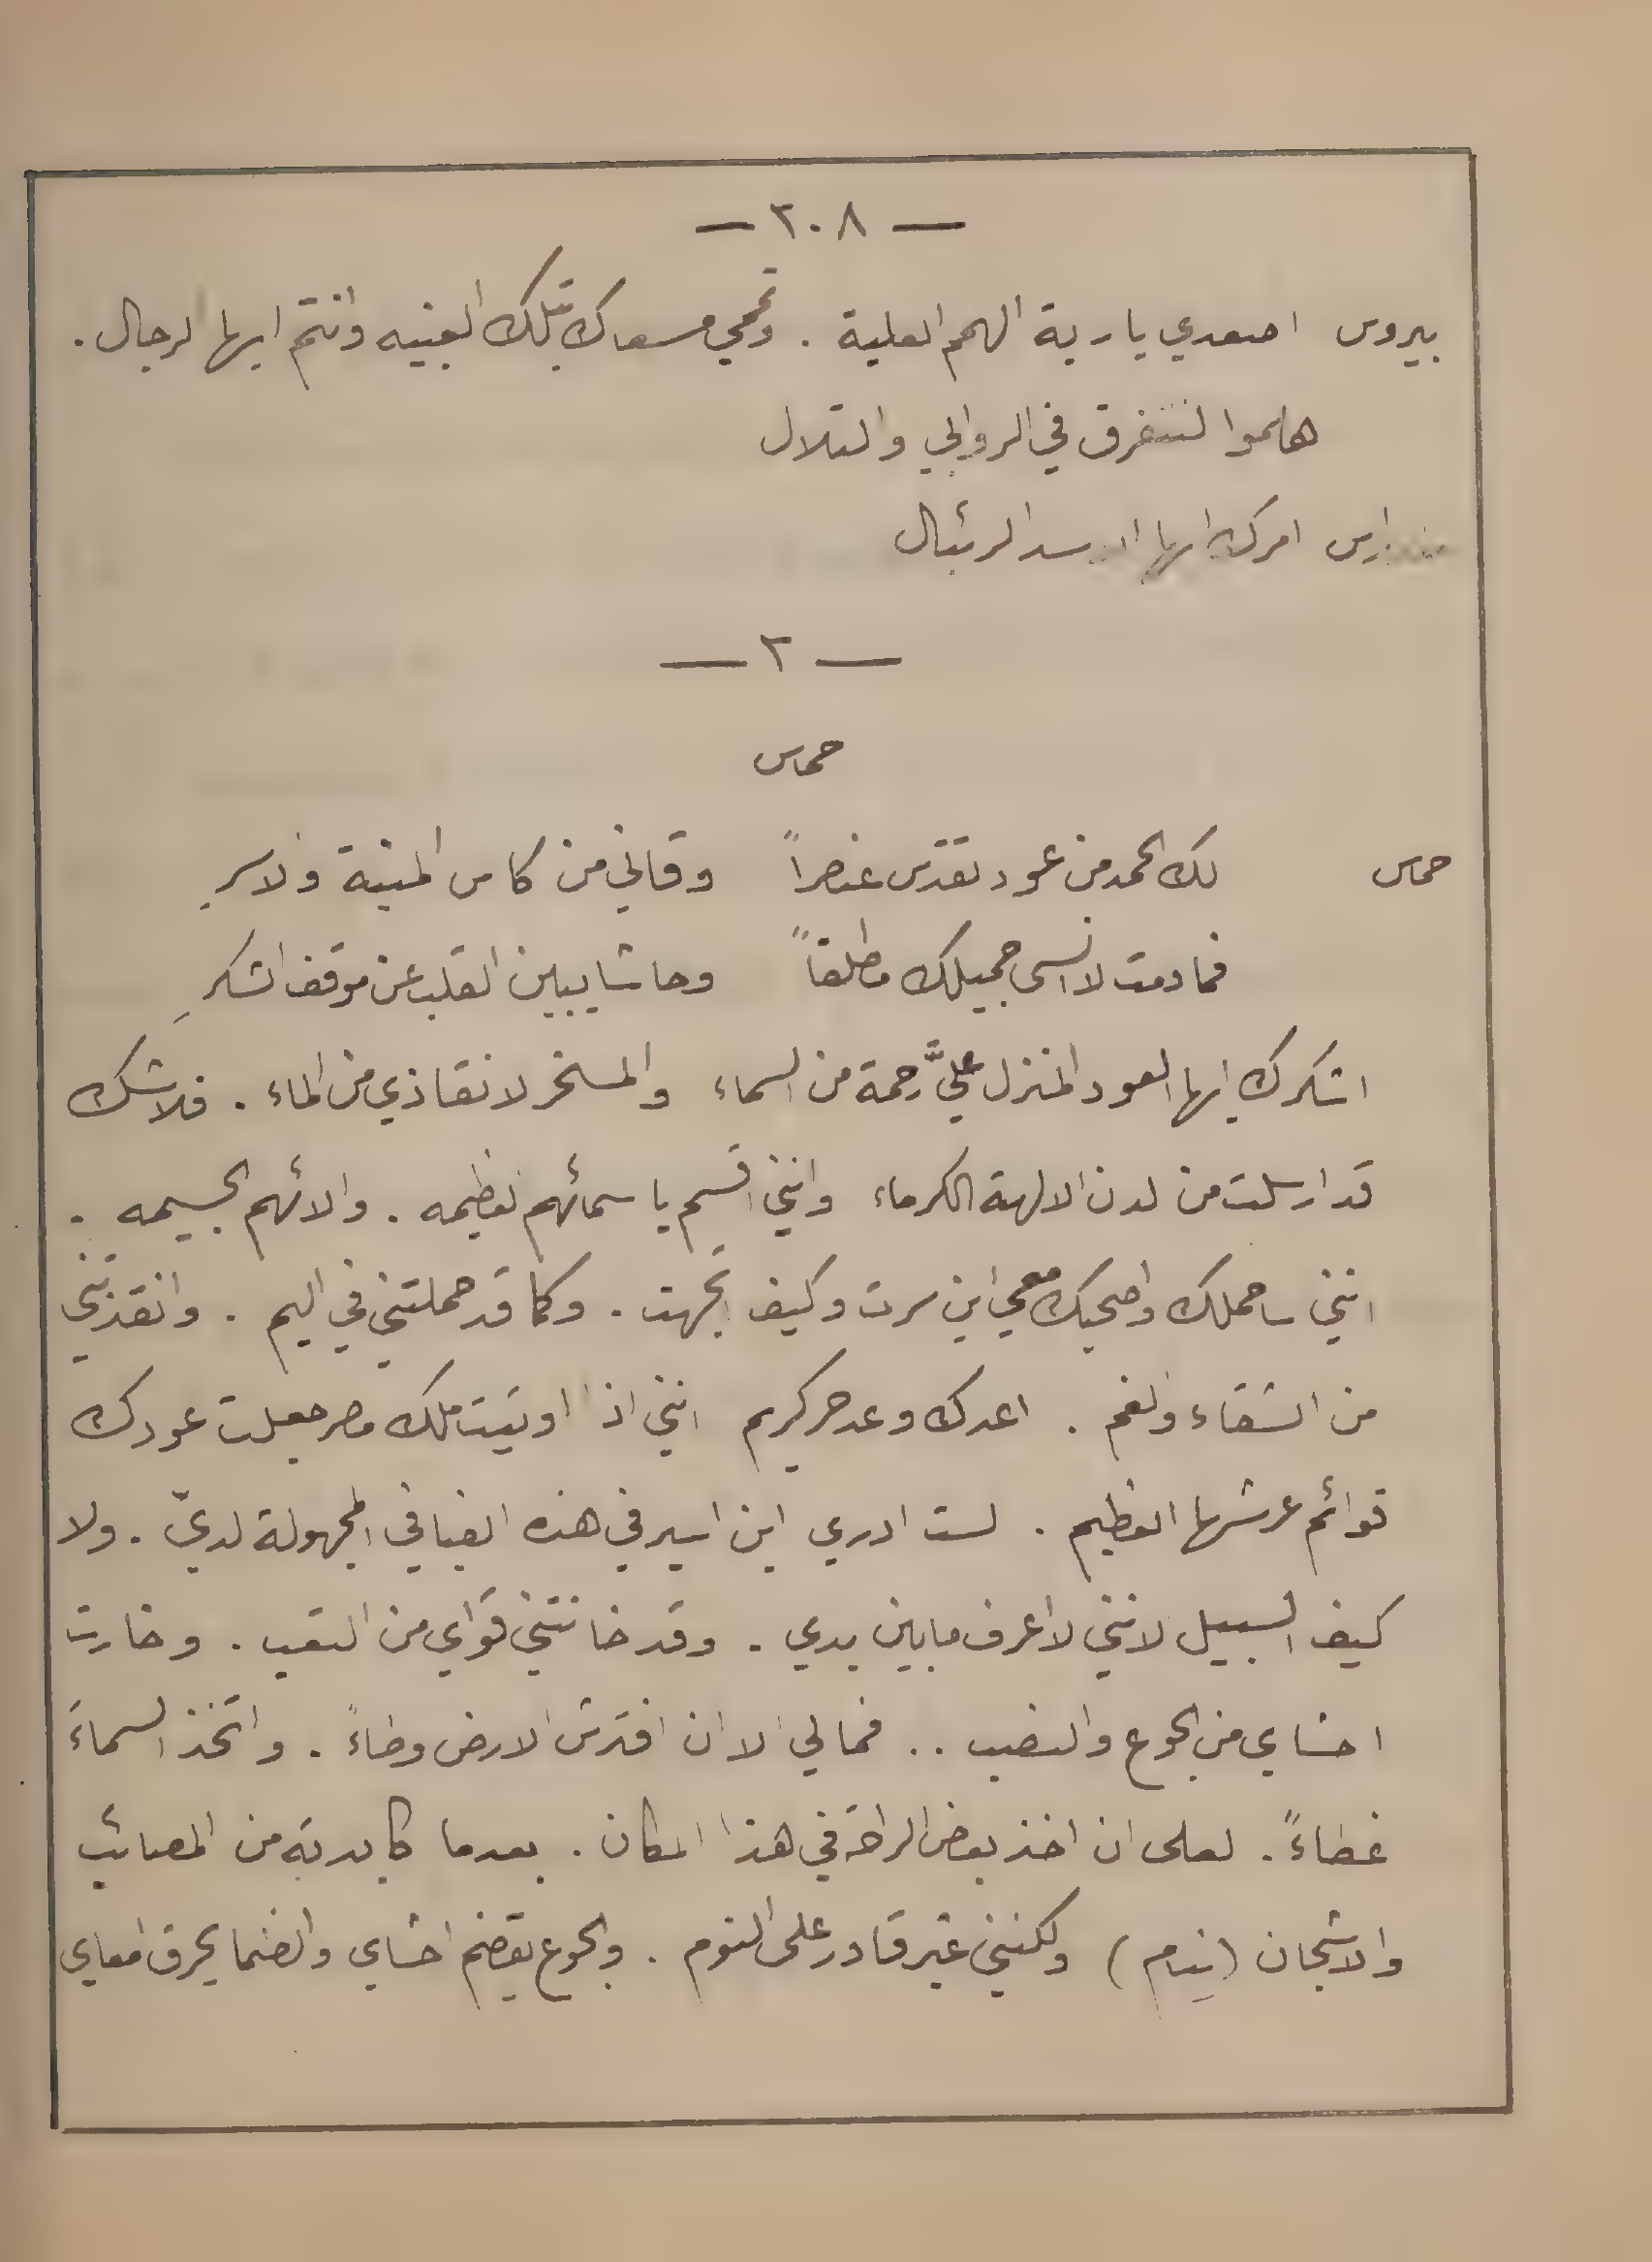 — ٢٠٨ —
بيروس اصعدي يا ربة الهمم العلية . وتممي مسعاك بتلك البغيه وانتم ايها الرجال .
هلموا لنتفرق في الروابي والتلال
امرك ايها الاسد الرئبال
— ٢ —
حماس
حماس لك الحمد من عود تقدس عنصراً وقاني من كاس المنية والاسرِ
فما دمت لا انسى جميلك مطلقاً وحاشا يبين القلب عن موقف الشكرِ
اشكرك ايها العود المنزل عليَّ رحمة من السماء والمسخر لانقاذي من الماء . فلا شك
قد ارسلت من لدن الالهة الكرماء وانني اقسم باسمائهم العظيمه . والائهم الجسيمه .
انني ساحملك واصحبك معي اين سرت وكيف اتجهت . وكما قد حملتني في اليم . وانقذتني
من الشقاء والغم . اعدك وعد حر كريم انني اذا اوتيت ملك مصر جعلت عودك
قوائم عرشها العظيم . لست ادري اين اسير في هذه الفيافي المجهولة لديّ . ولا
كيف السبيل لانني لا اعرف ما بين يدي . وقد خانتني قواي من التعب . وخارت
احشاي من الجوع والنصب .. فما لي الا ان افترش الارض وطاءً . واتخذ السماءَ
غطاءً . لعلى ان اخذ بعض الراحة في هذا المكان . بعدما كابدته من المصائب
والاشجان (ينام) ولكنني غير قادر على النوم . والجوع يقضم احشاي والضما يحرق امعاي